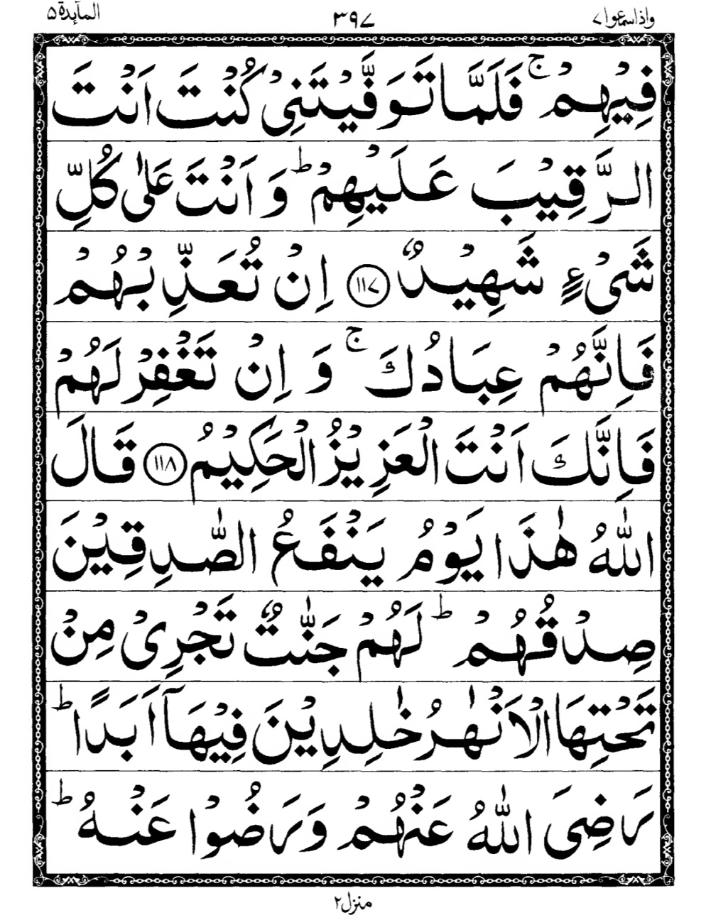 المآىٕدة ۵ ۳۹۷ واذاسمعوا ۷
فِيْهِمْ ۚ فَلَمَّا تَوَفَّيْتَنِىْ كُنْتَ اَنْتَ
الرَّقِيْبَ عَلَيْهِمْ ؕ وَ اَنْتَ عَلٰى كُلِّ
شَىْءٍ شَهِيْدٌ ﴿۱۱۷﴾ اِنْ تُعَذِّبْهُمْ
فَاِنَّهُمْ عِبَادُكَ ۚ وَ اِنْ تَغْفِرْ لَهُمْ
فَاِنَّكَ اَنْتَ الْعَزِيْزُ الْحَكِيْمُ ﴿۱۱۸﴾ قَالَ
اللّٰهُ هٰذَا يَوْمُ يَنْفَعُ الصّٰدِقِيْنَ
صِدْقُهُمْ ؕ لَهُمْ جَنّٰتٌ تَجْرِىْ مِنْ
تَحْتِهَا الْاَنْهٰرُ خٰلِدِيْنَ فِيْهَاۤ اَبَدًا ؕ
رَضِىَ اللّٰهُ عَنْهُمْ وَرَضُوْا عَنْهُ ؕ
منزل ۲